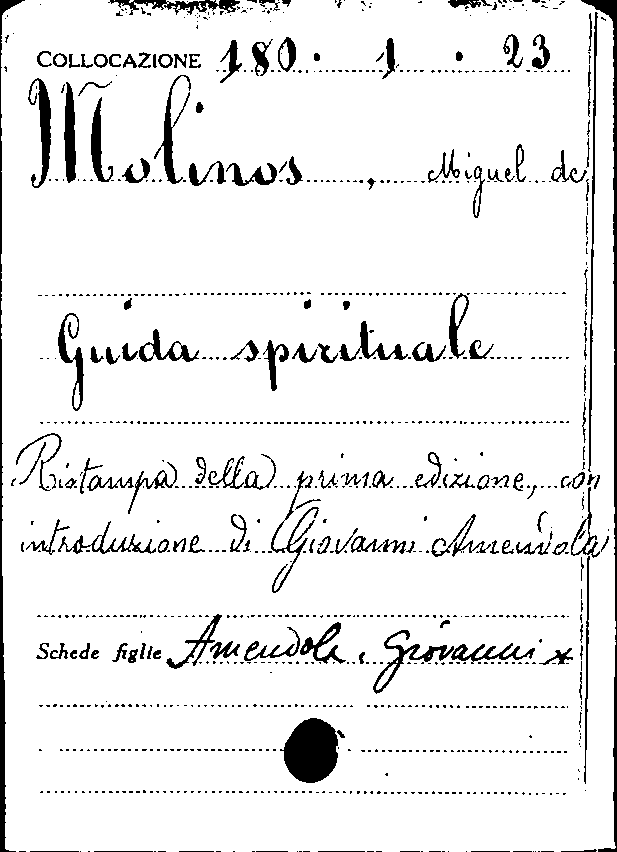 COLLOCAZIONE 180 · 1 · 23
Molinos, Miguel de
Guida spirituale
Ristampa della prima edizione, con
introduzione di Giovanni Amendola
Schede figlie Amendola, Giovanni x